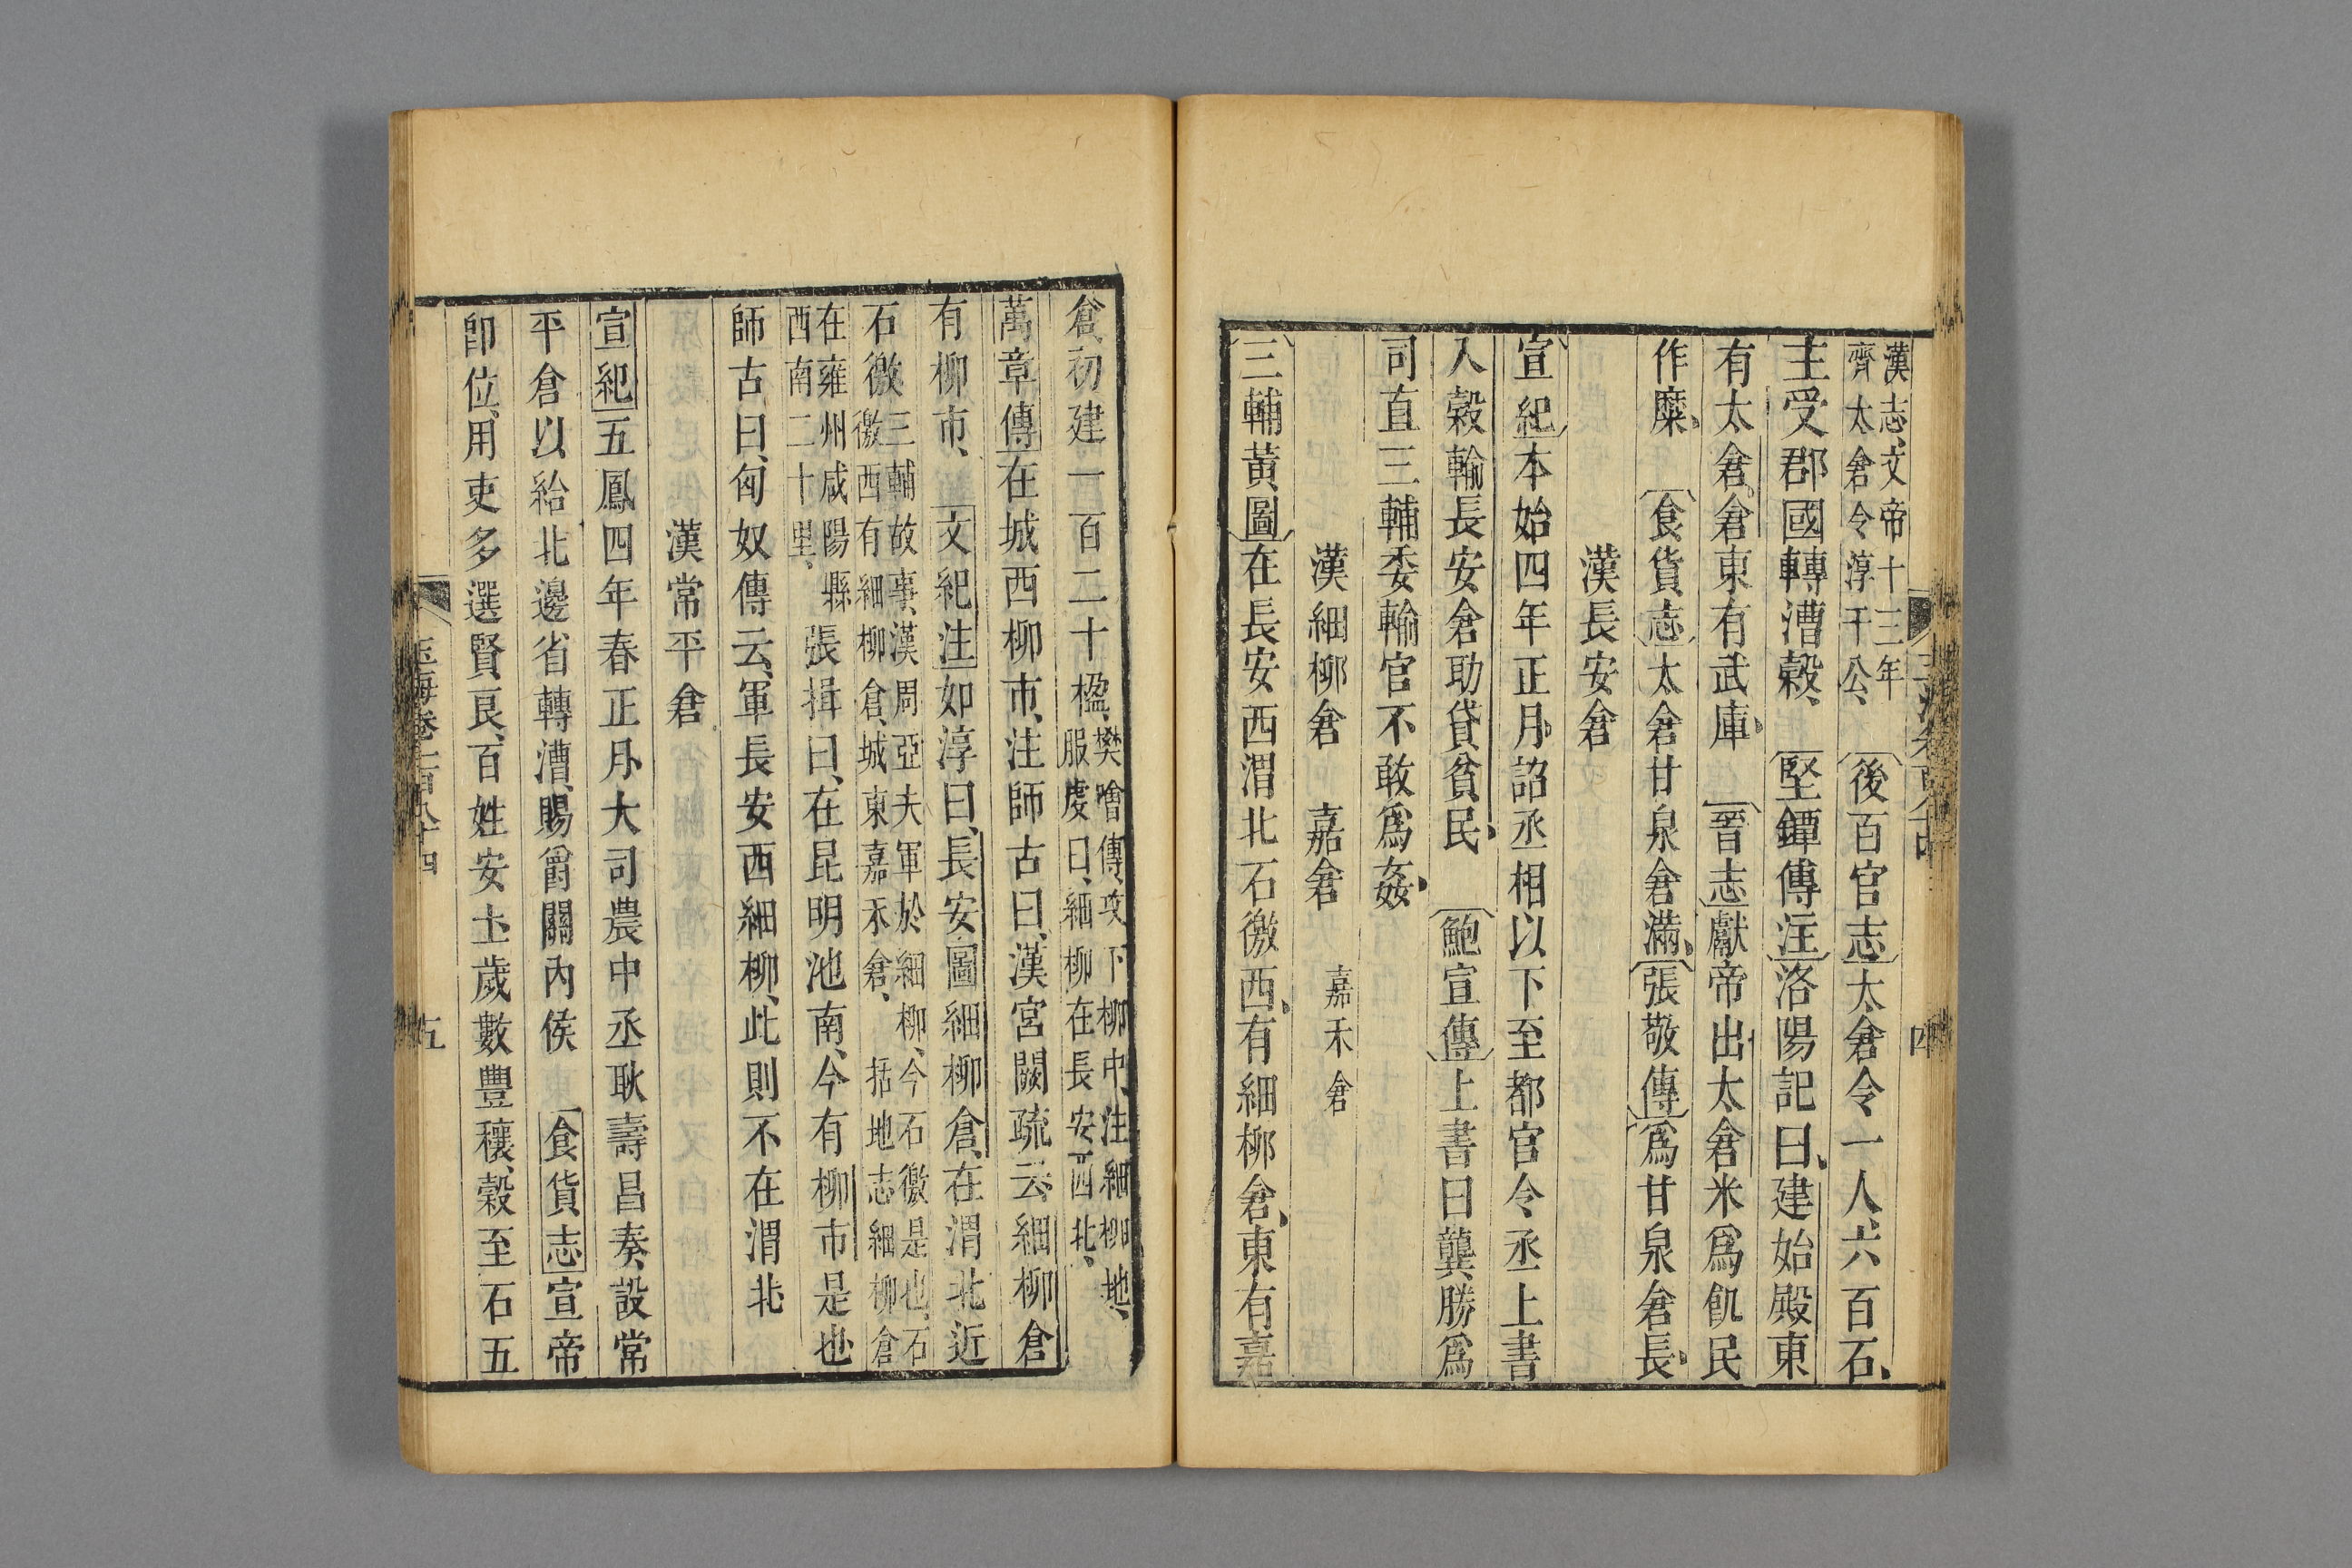 玉海卷一百八十四 四
漢志文帝十三年
齊太倉令淳于公、
後百官志太倉令一人六百石、
主受郡國轉漕穀、 堅鐔傳注洛陽記曰建始殿東
有太倉倉東有武庫 晉志獻帝出太倉米爲飢民
作糜 食貨志太倉甘泉倉滿張敬傳爲甘泉倉長
漢長安倉
宣紀本始四年正月詔丞相以下至都官令丞上書
入穀輸長安倉助貸貧民、 鮑宣傳上書曰龔勝爲
司直三輔委輸官不敢爲姦
漢細柳倉 嘉倉 嘉禾倉
三輔黃圖在長安西渭北石徼西有細柳倉東有嘉
倉初建一百二十楹、
樊噲傳攻下柳中、注細柳地、
服虔曰、細柳在長安西北、
萬章傳在城西柳市注師古曰漢宮闕疏云細柳倉
有柳市、 文紀注如淳曰、長安圖細柳倉、在渭北近
石徼
三輔故事漢周亞夫軍於細柳、今石徼是也、石
徼西有細柳倉、城東嘉禾倉、 括地志細柳倉
在雍州咸陽縣
西南二十里、
張揖曰、在昆明池南、今有柳市是也
師古曰、匈奴傳云、軍長安西細柳、此則不在渭北
漢常平倉
宣紀五鳳四年春正月大司農中丞耿壽昌奏設常
平倉以給北邊省轉漕、賜爵關內侯 食貨志宣帝
卽位、用吏多選賢良、百姓安土歲數豐穰、穀至石五
玉海卷一百八十四 五